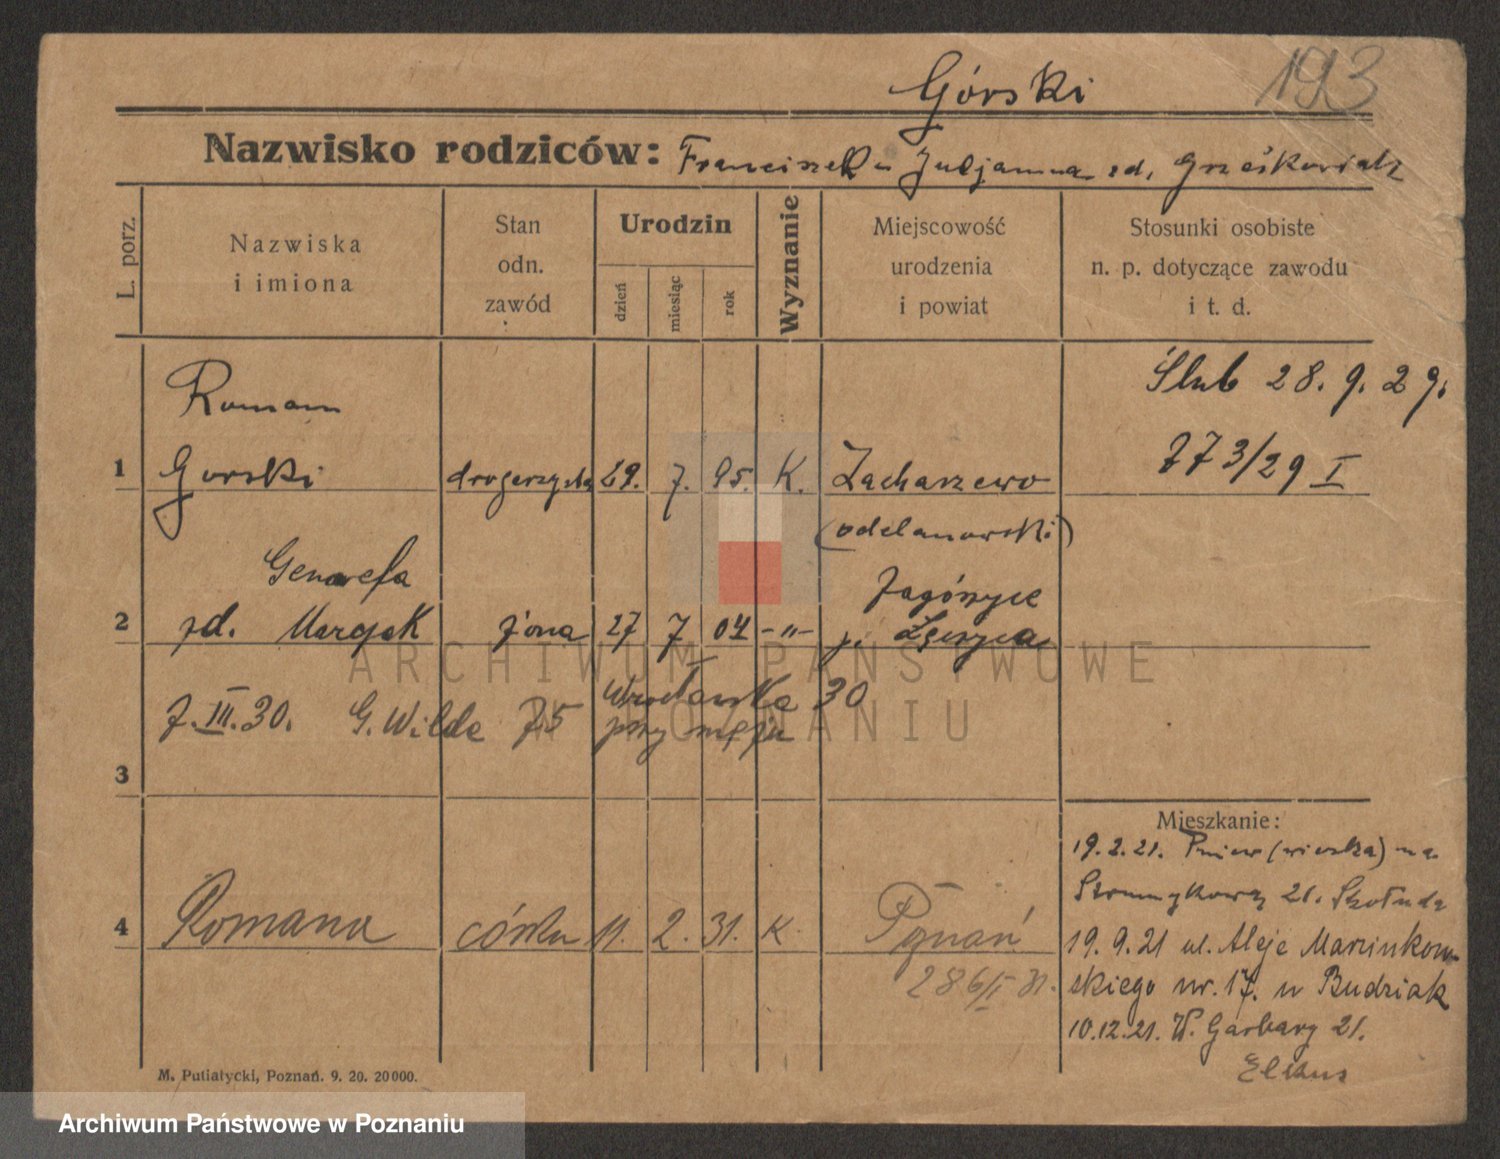 Górski
193
Nazwisko rodziców: Franciszek u Juljanna zd. Grześkowiak
L. porz.
Nazwiska
i imiona
Stan
odn.
zawód
Urodzin
dzień
miesiąc
rok
Wyznanie
Miejscowość
urodzenia
i powiat
Stosunki osobiste
n. p. dotyczące zawodu
i t. d.
Roman
1 Gorski drogerzysta 29. 7. 95. K. Zacharzewo
(odolanowski)
Ślub 28. 9. 29.
773/29 I
Genowefa
2 zd. Marczak żona 27 7 04 -"- Jagónyce
p.
7.III.30. G. Wilda 75 Wrocławska 30
przy mężu
3
4 Romana córka 11. 2. 31. K Poznań
286/I 31.
Mieszkanie:
19.2.21. Pniew (wioska) na
Strumykową 21. Szołuda
19. 9. 21 ul. Aleje Marcinkow-
skiego nr. 17. u Budziak
10.12.21. W. Garbary 21.
Elkus
M. Putiatycki, Poznań. 9. 20. 20000.
ARCHIWUM PAŃSTWOWE
W POZNANIU
Archiwum Państwowe w Poznaniu